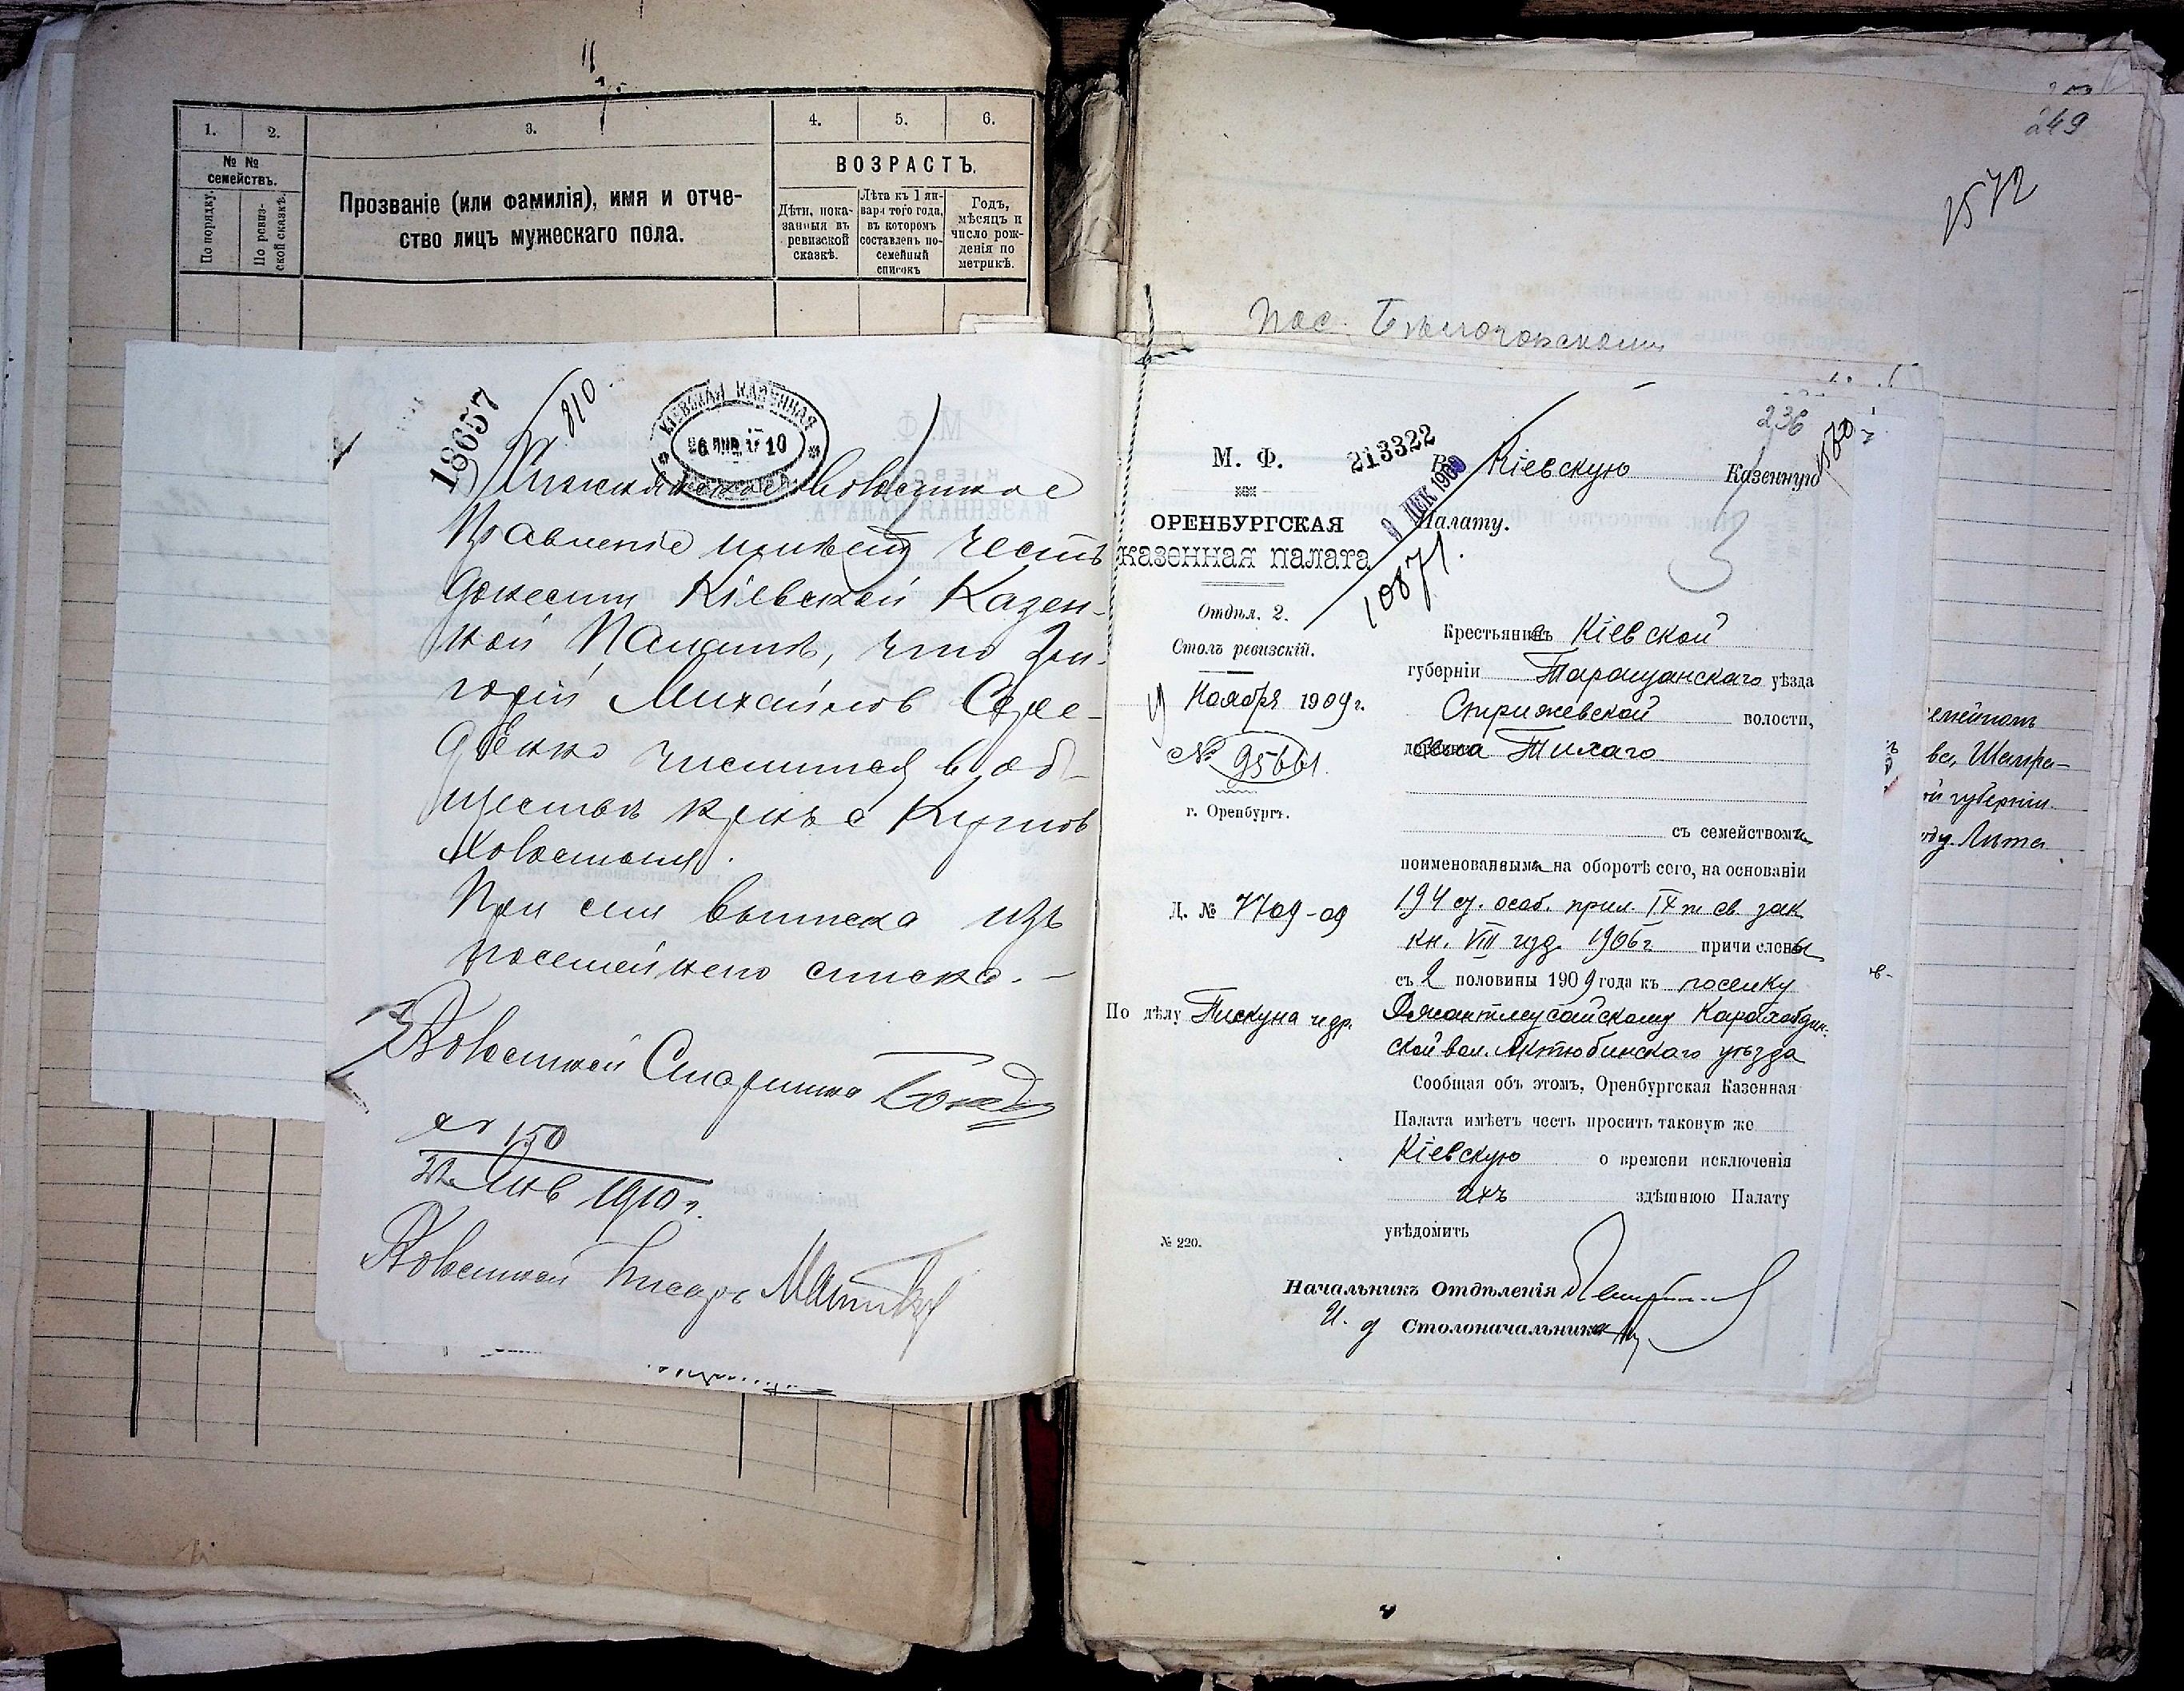 1. 2. 3. 4. 5. 6.
№ № семействъ.
По порядку.
По ревиз-
ской сказкѣ.
Прозваніе (или фамилія), имя и отче-
ство лицъ мужескаго пола.
ВОЗРАСТЪ.
Дѣти, пока-
занныя въ
ревизской
сказкѣ.
Лѣта къ 1 ян-
варя того года,
въ которомъ
составленъ по-
семейный
списокъ
Годъ,
мѣсяцъ и
число рож-
денія по
метрикѣ.
18657
810
КІЕВСКАЯ КАЗЕННАЯ
10
Волостное
Правленіе имѣетъ честь
донести Кіевской Казен-
ной Палатѣ, что
горій Михайлов Сере-
денко числится въ об-
ществѣ кр-нъ с
Волости.
При сем выписка изъ
посемейнаго списка. —
Волостной Старшина
№ 150
22 Янв 1910 г.
Волостной Писарь
249
1572
Пос.
236
М. Ф.
ОРЕНБУРГСКАЯ
КАЗЕННАЯ ПАЛАТА
Отдѣл. 2.
Столъ ревизскій.
Ноября 1909 г.
№ 95661.
г. Оренбургъ.
Д. № 7709-09
По дѣлу Пискуна и др.
№ 220.
213322
9 ДЕК 1909
10871.
Въ Кіевскую Казенную
Палату.
Крестьяне Кіевской
губерніи Таращанскаго уѣзда
Стрижевской волости,
села Тихаго
съ семействами
поименованными на оборотѣ сего, на основаніи
194 ст. особ. прил. IX т св. зак
кн. VIII изд. 1906 г причислены
съ 2 половины 1909 года къ поселку
Джантлеусайскому Карахобдин-
ской вол. Актюбинскаго уѣзда
Сообщая объ этомъ, Оренбургская Казенная
Палата имѣетъ честь просить таковую же
Кіевскую о времени исключенія
ихъ здѣшнюю Палату
увѣдомить
Начальникъ Отдѣленія
И. д Столоначальника
й губерніи